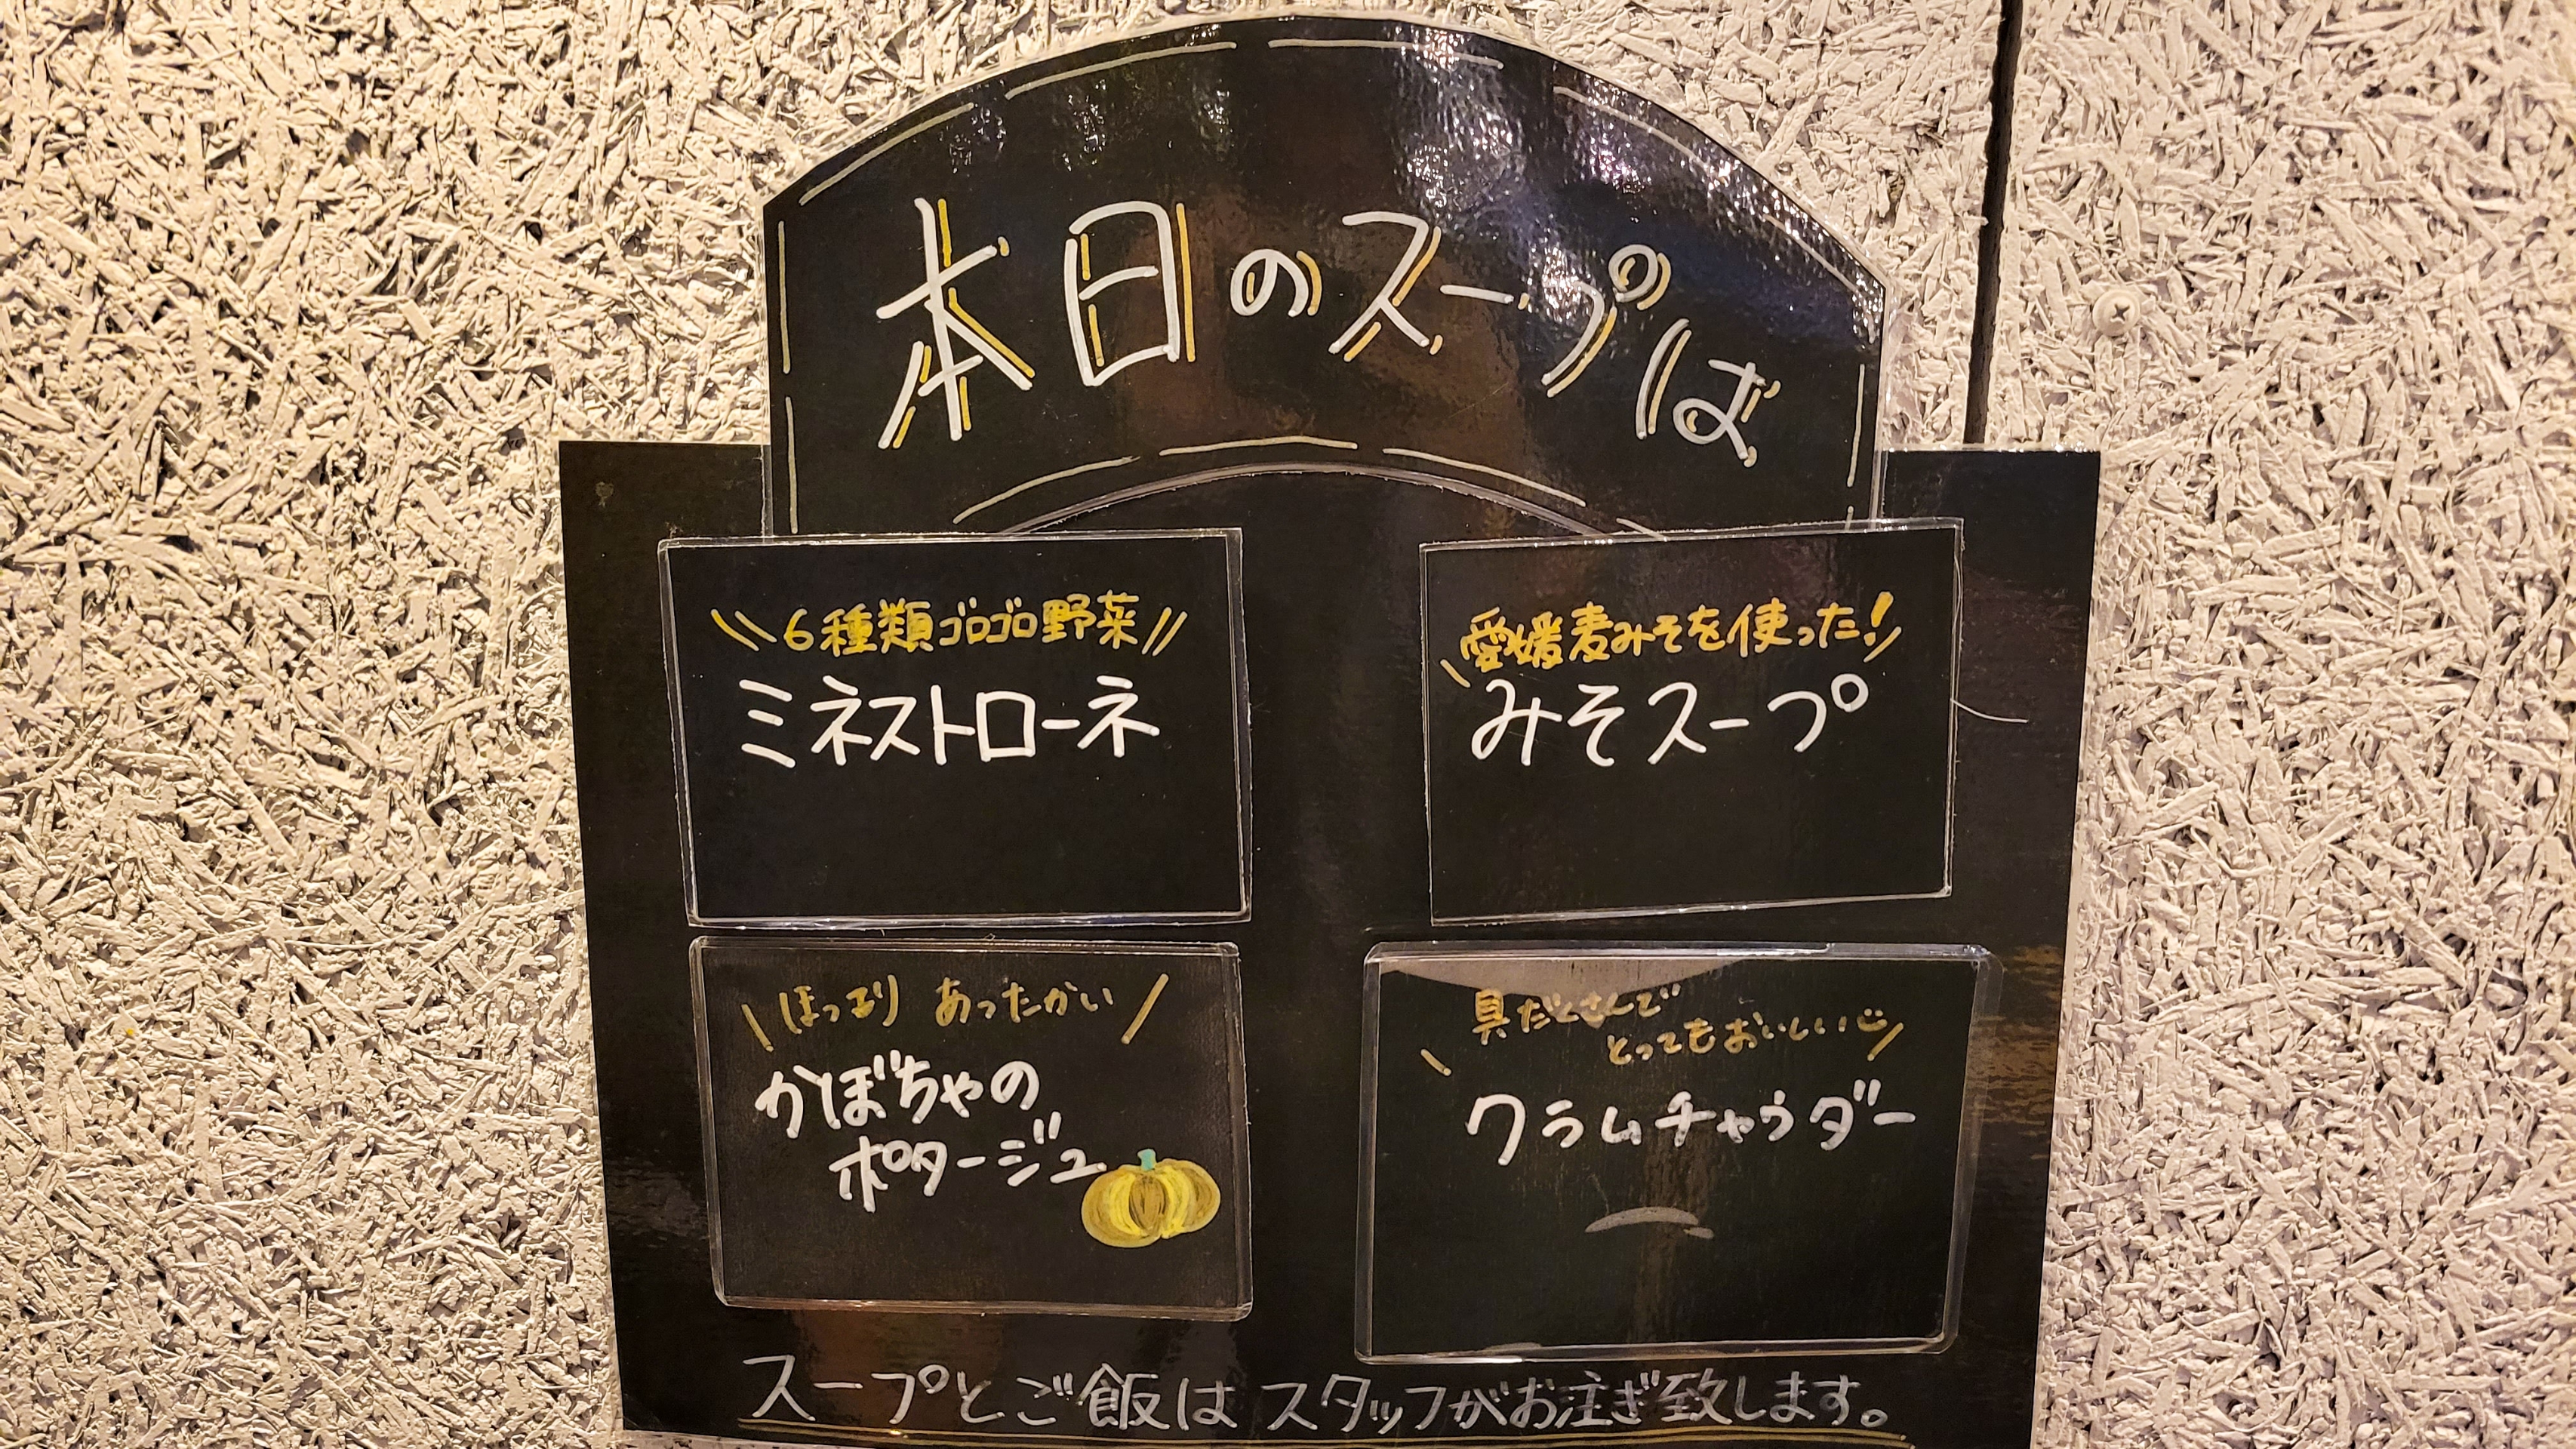 本日のスープは
6種類ゴロゴロ野菜
ミネストローネ
愛媛麦みそを使った!
みそスープ
ほっこり あったかい
かぼちゃの
ポタージュ
具だくさんで
とってもおいしい
クラムチャウダー
スープとご飯はスタッフがお注ぎ致します。